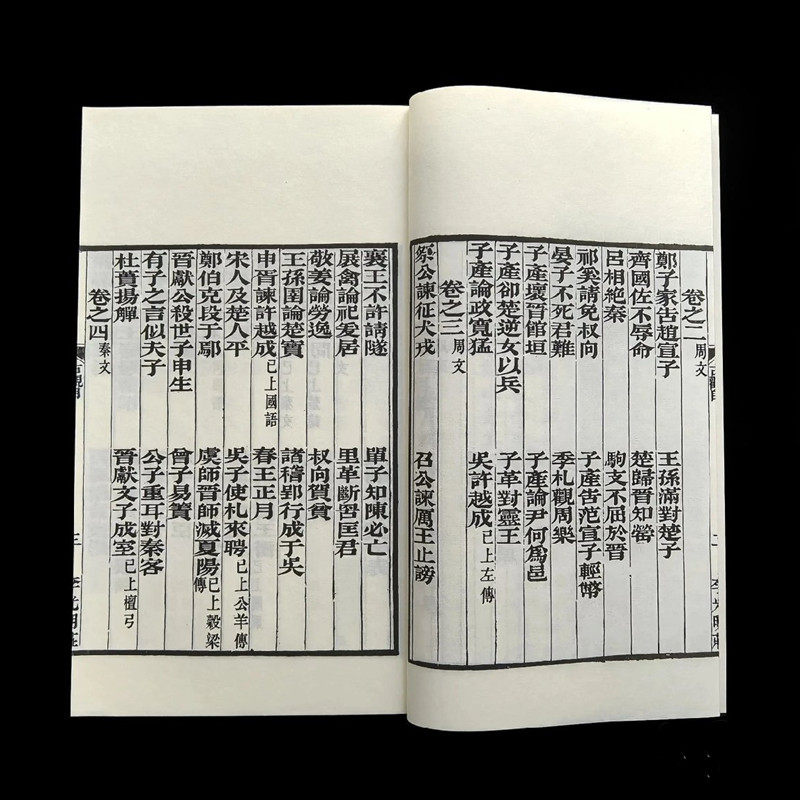 卷之二 周文
鄭子家告趙宣子 王孫滿對楚子
齊國佐不辱命 楚歸晉知罃
呂相絕秦 駒支不屈于晉
祁奚請免叔向 子產告范宣子輕幣
晏子不死君難 季札觀周樂
子產壞晉館垣 子產論尹何爲邑
子產卻楚逆女以兵 子革對靈王
子產論政寬猛 吳許越成 已上左傳
卷之三 周文
祭公諫征犬戎 召公諫厲王止謗
襄王不許請隧 單子知陳必亡
展禽論祀爰居 里革斷罟匡君
敬姜論勞逸 叔向賀貧
王孫圉論楚寶 諸稽郢行成于吳
申胥諫許越成 已上國語 春王正月
宋人及楚人平 吳子使札來聘 已上公羊傳
鄭伯克段于鄢 虞師晉師滅夏陽 已上穀梁傳
晉獻公殺世子申生 曾子易簀
有子之言似夫子 公子重耳對秦客
杜蕢揚觶 晉獻文子成室 已上檀弓
卷之四 秦文
三 李光明莊